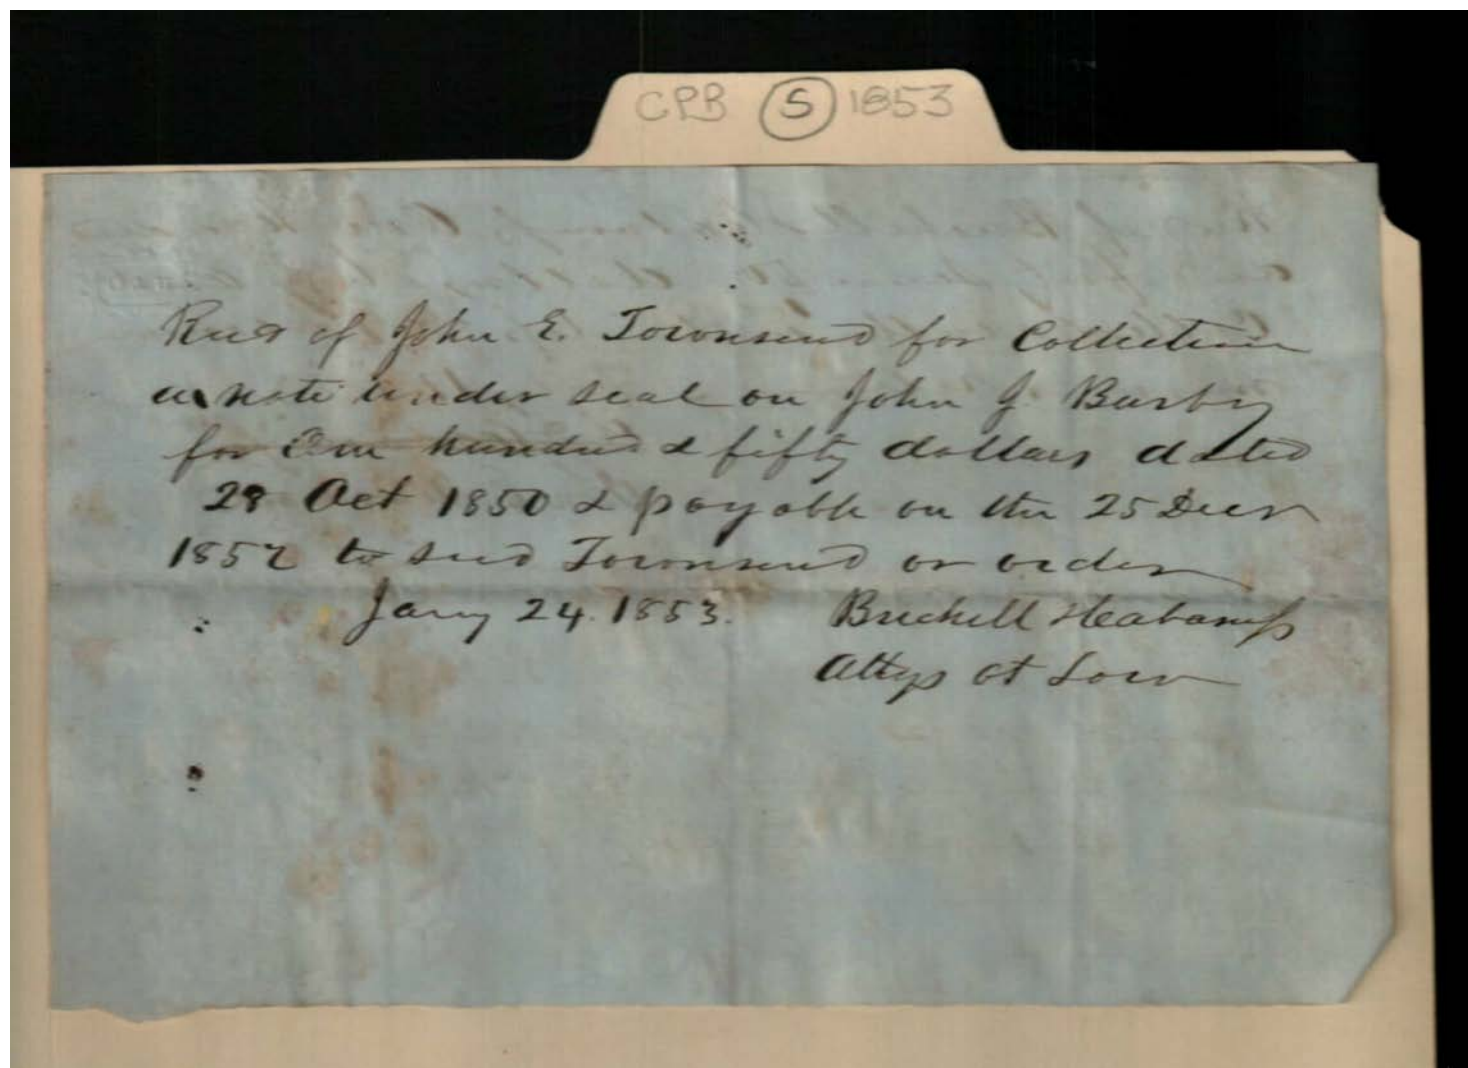 CPB S 1853
Recd of John E. Townsend for Collection
a note under seal on John J. Busby
for One hundred & fifty dollars dated
28 Oct 1850 & payable on the 25 Decr
1852 to said Townsend or order
Jany 24. 1853. Brickell & Cabaniss
Attys at Law